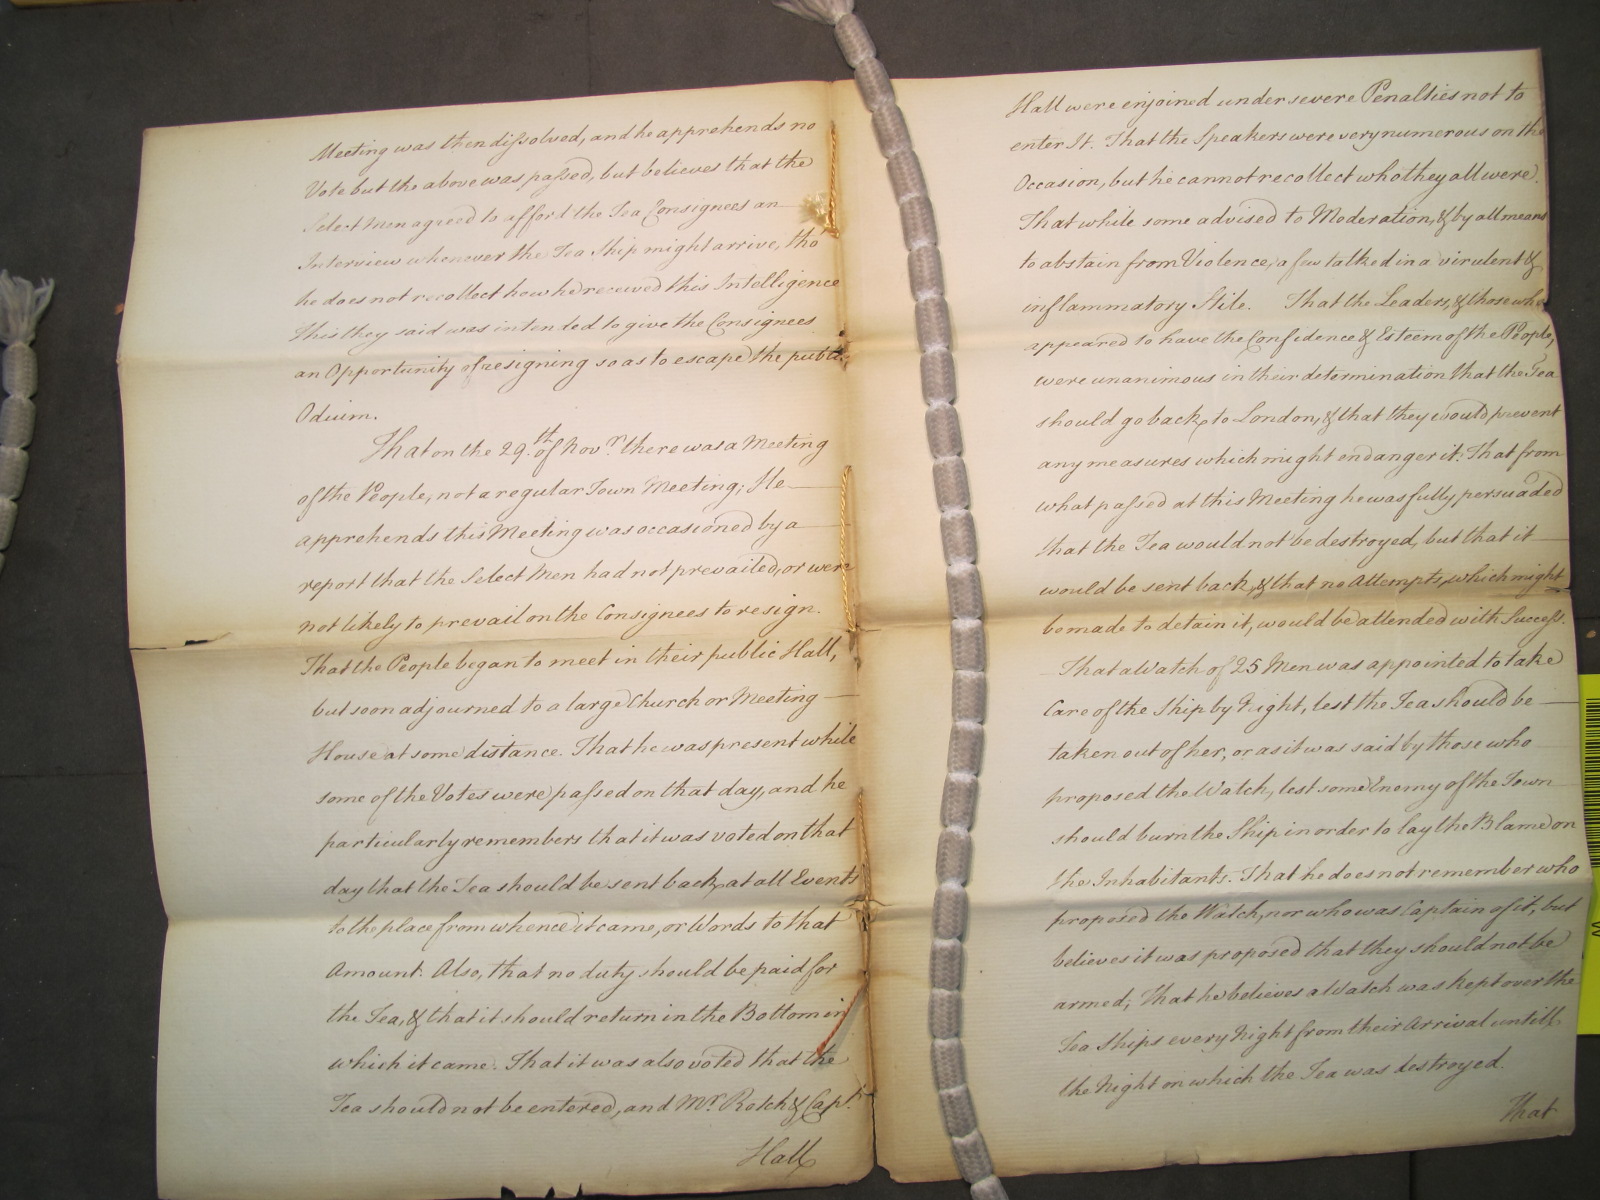 Meeting was then dissolved, and he apprehends no
Vote but the above was passed, but believes that the
Select Men agreed to afford the Tea Consignees an
Interview whenever the Tea Ship might arrive, tho'
he does not recollect how he received this Intelligence
This they said was intended to give the Consignees
an Opportunity of resigning so as to escape the public
Oduim.
That on the 29th. of Novr. there was a Meeting
of the People, not a regular Town Meeting; He
apprehends this Meeting was occasioned by a
report that the Select Men had not prevailed, or were
not likely to prevail on the Consignees to resign.
That the People began to meet in their public Hall,
but soon adjourned to a large Church or Meeting
House at some distance. That he was present while
some of the Votes were passed on that day, and he
particularly remembers that it was voted on that
day that the Tea should be sent back, at all Events
to the place from whence it came, or Words to that
Amount. Also, that no duty should be paid for
the Tea, & that it should return in the Bottom in
which it came. That it was also voted that the
Tea should not be entered, and Mr. Rotch & Capt.
Hall
Hall were enjoined under severe Penalties not to
enter It. That the Speakers were very numerous on the
Occasion, but he cannot recollect who they all were.
That while some advised to Moderation, & by all means
to abstain from Violence, a few talked in a virulent &
inflammatory Stile. That the Leaders, & those who
appeared to have the Confidence & Esteem of the People,
were unanimous in their determination that the Tea
should go back to London, & that they would prevent
any measures which might endanger it. That from
what passed at this Meeting he was fully persuaded
that the Tea would not be destroyed, but that it
would be sent back, & that no Attempts, which might
be made to detain it, would be attended with Success.
That a Watch of 25 Men was appointed to take
Care of the Ship by Night, lest the Tea should be
taken out of her, or as it was said by those who
proposed the Watch, lest some Enemy of the Town
should burn the Ship in order to lay the Blame on
the Inhabitants. That he does not remember who
proposed the Watch, nor who was Captain of it, but
believes it was proposed that they should not be
armed; That he believes a Watch was kept over the
Tea Ships every Night from their Arrival untill
the Night on which the Tea was destroyed.
That